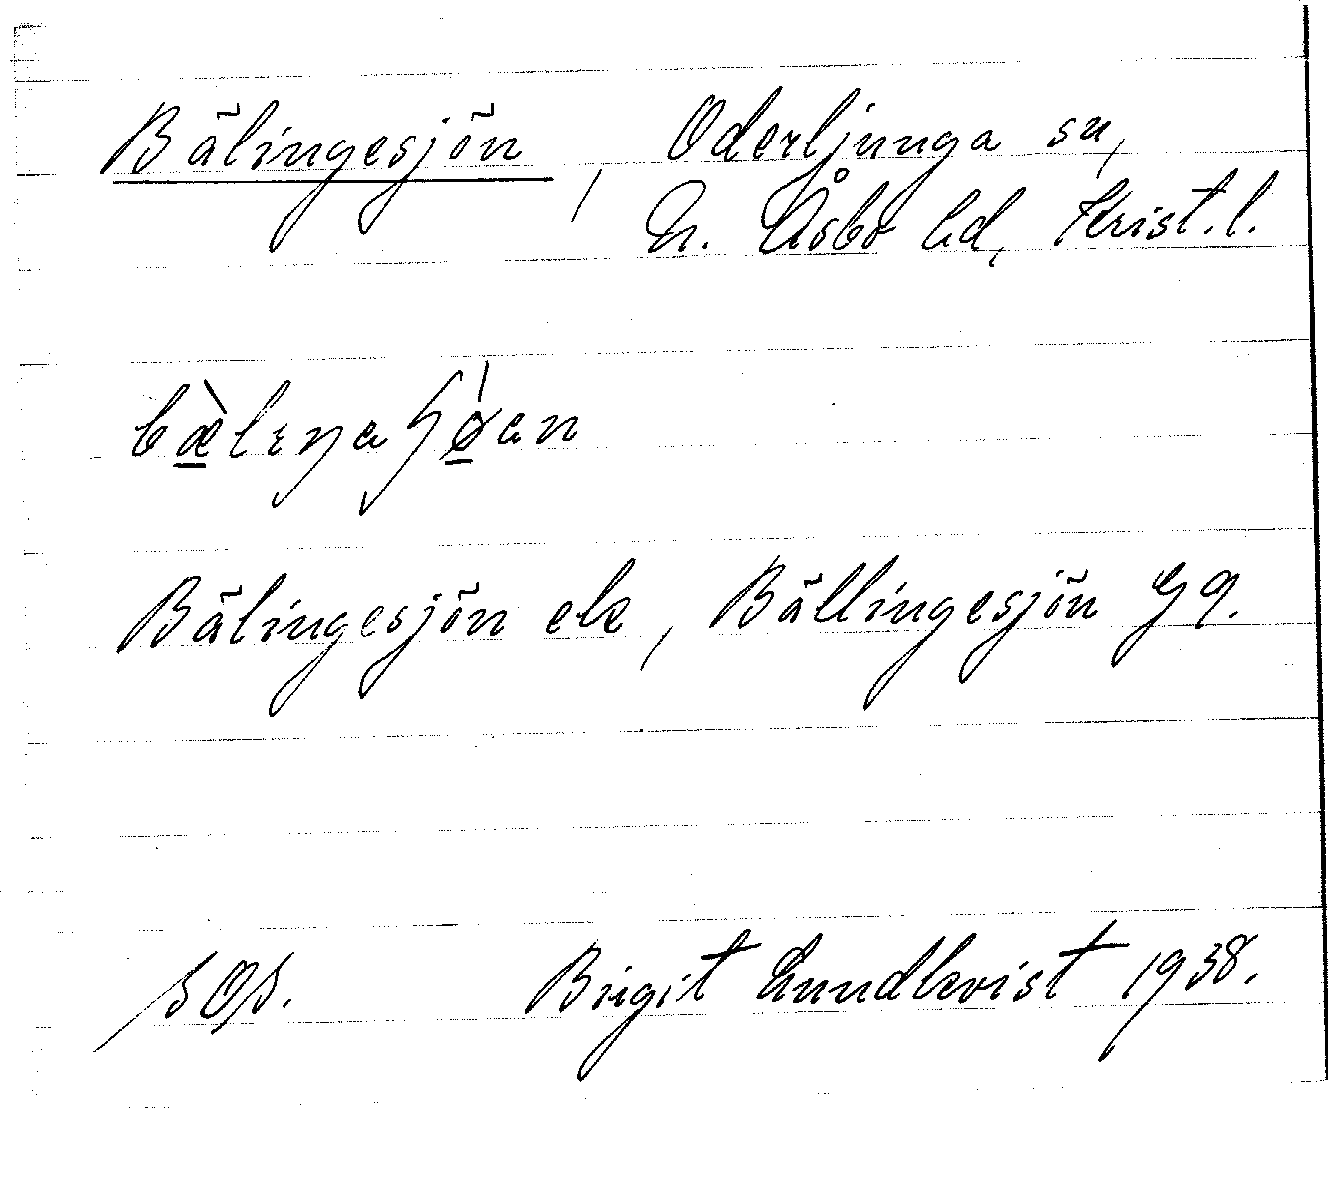 Bälingesjön, Oderljunga sn,
N. Åsbo hd, Krist.l.
Bälingesjön ek, Bällingesjön Gq.
SOS. Birgit Lundkvist 1938.